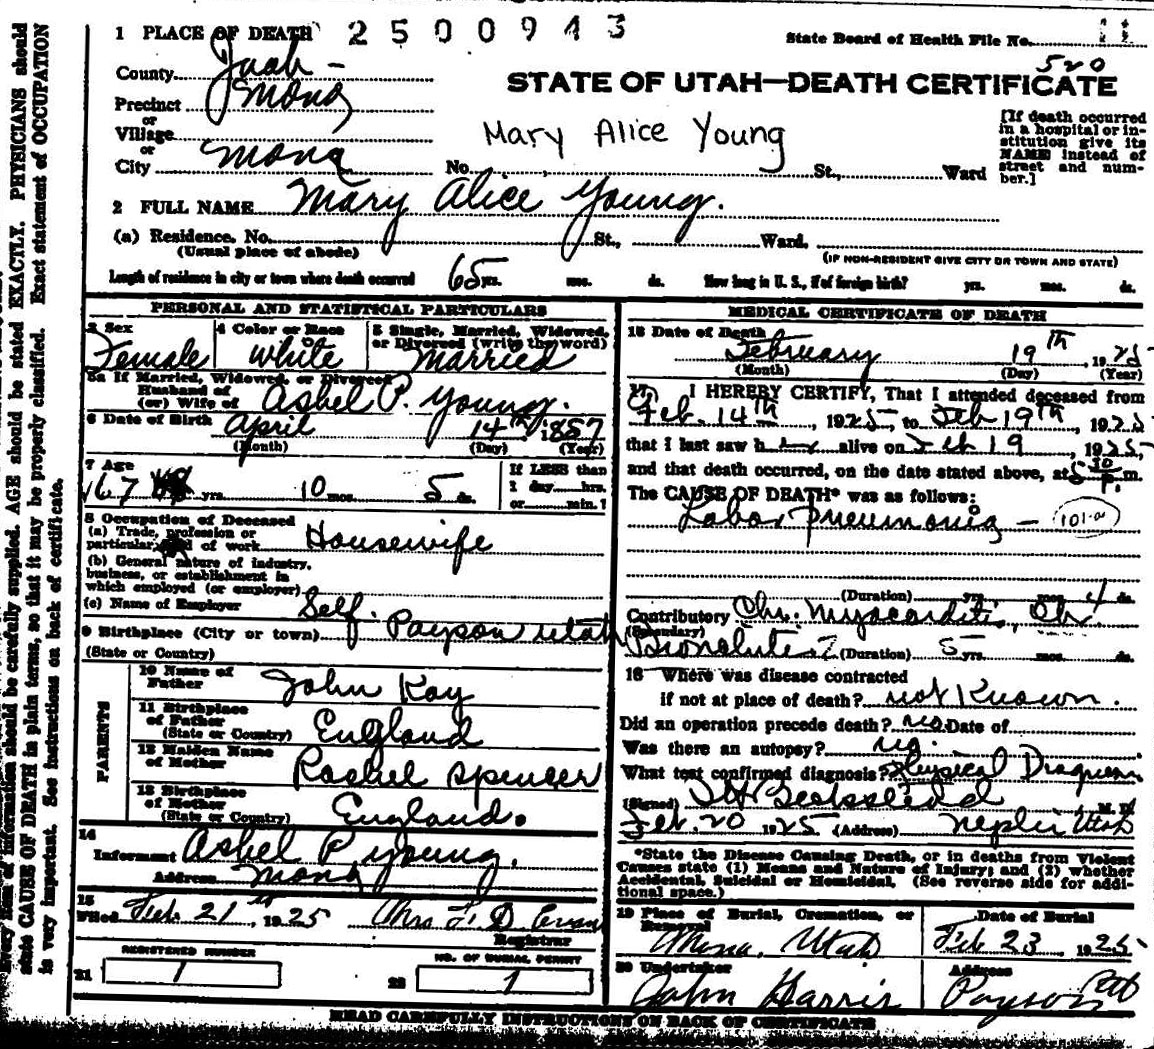 1 PLACE OF DEATH 2500943
State Board of Health File No. 11
520
County Juab -
Precinct Mona
or
Village
or
City Mona
STATE OF UTAH—DEATH CERTIFICATE
Mary Alice Young
No. St., Ward
[If death occurred in a hospital or in-
stitution give its
NAME instead of
street and num-
ber.]
2 FULL NAME Mary Alice Young.
(a) Residence. No. St., Ward.
(Usual place of abode)
(IF NON-RESIDENT GIVE CITY OR TOWN AND STATE)
Length of residence in city or town where death occurred 65 yrs. mos. ds. How long in U. S., if of foreign birth? yrs. mos. ds.
PERSONAL AND STATISTICAL PARTICULARS
3 Sex
Female
4 Color or Race
White
5 Single, Married, Widowed,
or Divorced (write the word)
Married
5a If Married, Widowed, or Divorced
Husband of
(or) Wife of Asbel P. Young.
6 Date of Birth April 14th 1857
(Month) (Day) (Year)
7 Age
67 yrs. 10 mos. 5 ds.
If LESS than
1 day hrs.
or min.?
8 Occupation of Deceased
(a) Trade, profession or
particular kind of work Housewife
(b) General nature of industry,
business, or establishment in
which employed (or employer)
(c) Name of Employer Self.
9 Birthplace (City or town) Payson Utah
(State or Country)
PARENTS
10 Name of
Father John Kay
11 Birthplace
of Father
(State or Country) England
12 Maiden Name
of Mother Rachel Spencer
13 Birthplace
of Mother
(State or Country) England.
14
Informant Asbel P Young.
Address Mona
15
Filed Feb. 21st, 1925 Mrs F. D. Evans
Registrar
REGISTERED NUMBER
21 1
NO. OF BURIAL PERMIT
22 1
MEDICAL CERTIFICATE OF DEATH
16 Date of Death
February 19th, 1925
(Month) (Day) (Year)
17 I HEREBY CERTIFY, That I attended deceased from
Feb. 14th, 1925, to Feb 19th, 1925
that I last saw her alive on Feb 19, 1925,
and that death occurred, on the date stated above, at 5 30 P. m.
The CAUSE OF DEATH* was as follows:
Lobar pneumonia - 101-a
(Duration) yrs. mos. 4 ds.
Contributory Chr. Myocarditis, Chr.
(Secondary)
(Duration) 5 yrs. mos. ds.
18 Where was disease contracted
if not at place of death? not Known.
Did an operation precede death? no Date of
Was there an autopsy? no.
What test confirmed diagnosis? Physical
(Signed) M. D.
Feb. 20 1925 (Address) Nephi Utah
*State the Disease Causing Death, or in deaths from Violent
Causes state (1) Means and Nature of Injury; and (2) whether
Accidental, Suicidal or Homicidal. (See reverse side for addi-
tional space.)
19 Place of Burial, Cremation, or
Removal
Mona, Utah
Date of Burial
Feb 23 1925
20 Undertaker
John Harris
Address
Payson
READ CAREFULLY INSTRUCTIONS ON BACK OF CERTIFICATE
Every item of information should be carefully supplied. AGE should be stated EXACTLY. PHYSICIANS should
state CAUSE OF DEATH in plain terms, so that it may be properly classified. Exact statement of OCCUPATION
is very important. See instructions on back of certificate.